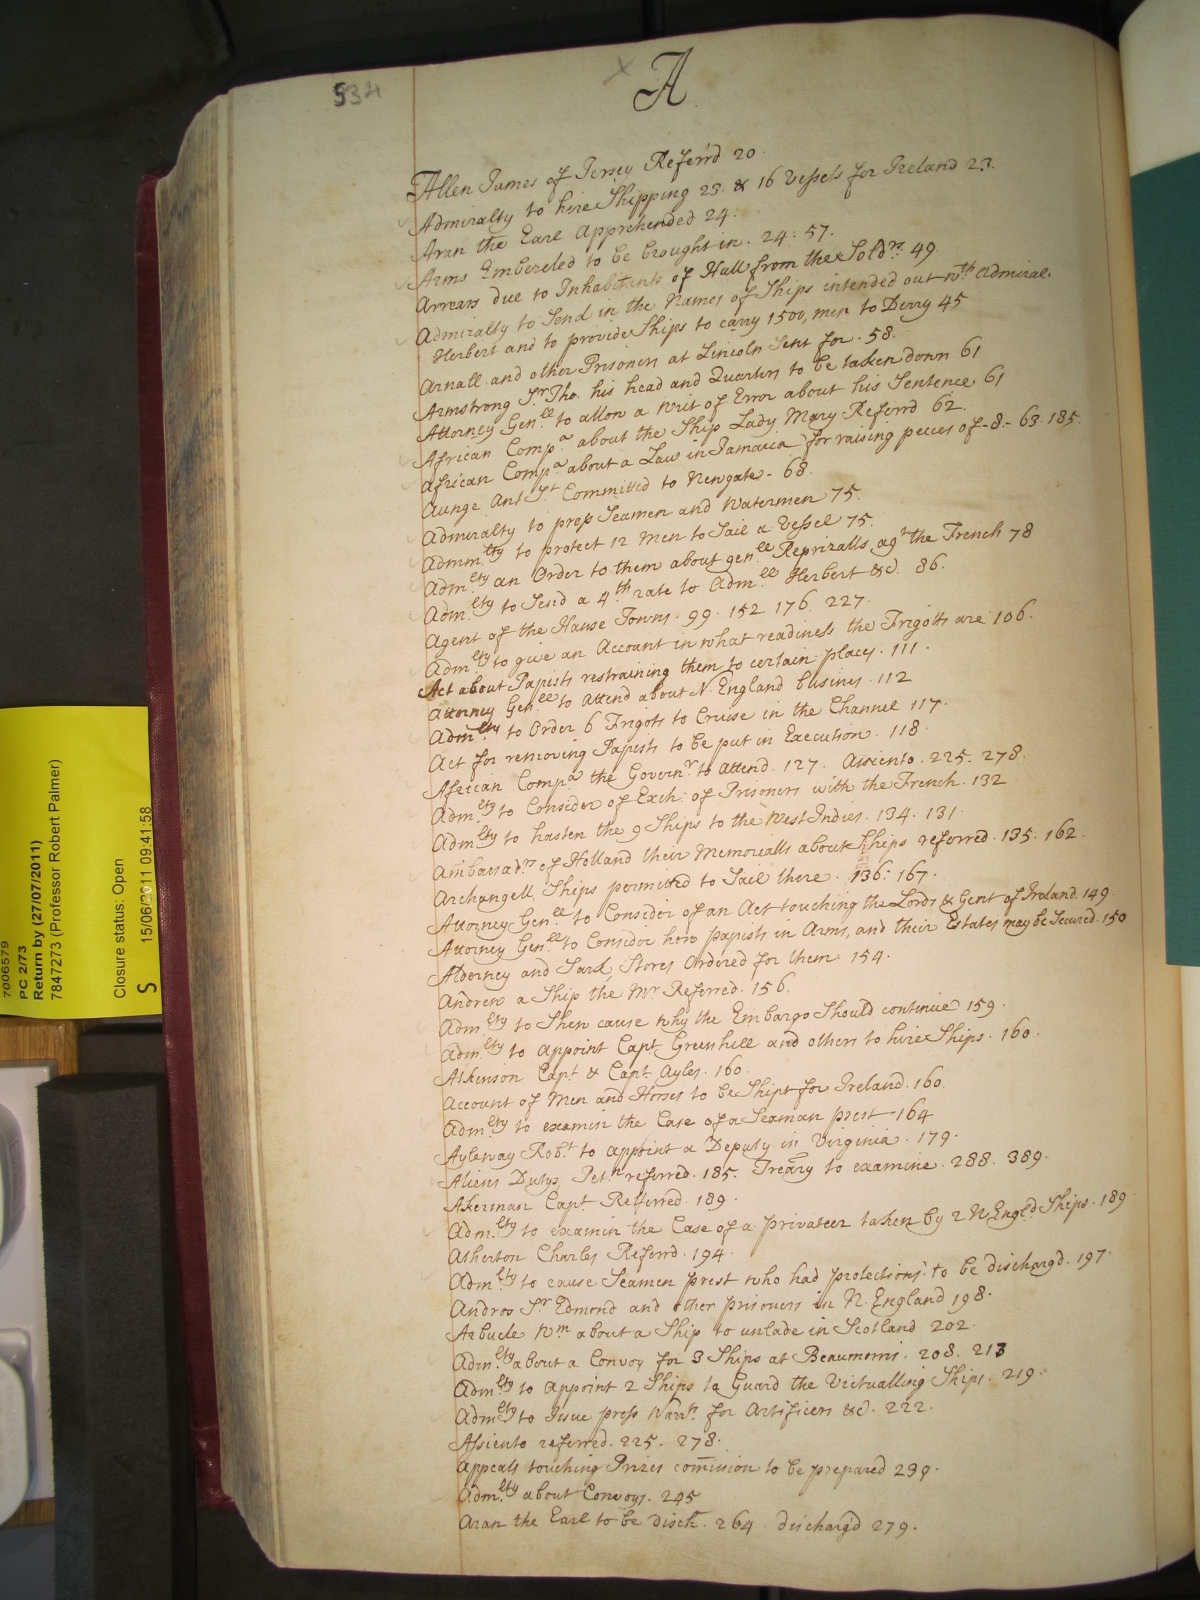 534
A
Allen James of Jersey Referrd 20
Admiralty to hire Shipping 23. & 16 Vessels for Ireland 23.
Aran the Earl Apprehended 24.
Arms Embezeled to be brought in. 24: 57.
Arrears due to Inhabitants of Hull from the Soldrs. 49
Admiralty to Send in the Names of Ships intended out wth Admiral
Herbert and to provide Ships to carry 1500, men to Derry 45
Arnall and other Prisoners at Lincoln Sent for. 58.
Armstrong Sr Tho. his head and Quarters to be taken down 61
Attorney Genll to allow a Writ of Error about his Sentence 61
African Compa about the Ship Lady Mary Referrd 62.
African Compa about a Law in Jamaica for raising peeces of-8- 63. 185.
Aunge Ant St Committed to Newgate- 68.
Admiralty to press Seamen and Watermen 75.
Admmlty to protect 12 Men to Sail a Vessel 75.
Admlty an Order to them about genll Reprizalls agt the French 78
Admlty to Send a 4th rate to Admll Herbert &c. 86.
Agent of the Hanse Towns. 99. 152 176. 227.
Admlty to give an Account in what readiness the Frigotts are 106.
Act about Papists restraining them to certain places. 111.
Attorney Genll to Attend about N. England busines. 112
Admlty to Order 6 Frigots to Cruise in the Channel 117.
Act for removing Papists to be put in Execution. 118.
African Compa the Governr to attend. 127. Assiento. 225. 278.
Admlty to Consider of Exch: of Prisoners with the French. 132
Admlty to hasten the 9 Ships to the West Indies. 134. 131.
Ambassadrs of Holland their Memorialls about Ships referred. 135. 162.
Archangell, Ships permitted to Sail there. 136: 167.
Attorney Genll to Consider of an Act touching the Lords & Gent of Ireland. 149.
Attorney Genll to Consider how papists in Arms, and their Estates may be Secured. 150
Alderney and Sark, Stores Ordered for them 154.
Andrew a Ship the Mr Referred. 156.
Admlty to Shew cause why the Embargo Should continue 159.
Admlty to appoint Capt Greenhill and others to hire Ships. 160.
Atkinson Capt & Capt Ayles. 160.
Account of Men and Horses to be Shipt for Ireland. 160.
Admlty to examin the Case of a Seaman prest 164
Ayleway Robt to appoint a Deputy in Virginia. 179.
Aliens Dutys, Petn referred. 185. Treãry to examine. 288. 389.
Akerman Capt Referred. 189.
Admlty to examin the Case of a privateer taken by 2 N. Engld Ships. 189
Atherton Charles Referrd. 194.
Admlty to cause Seamen prest who had protections to be dischargd. 197.
Andros Sr Edmond and other prisoners in N. England 198.
Arbucle Wm about a Ship to unlade in Scotland 202.
Admlty about a Convoy for 3 Ships at Beaumorris. 208. 213
Admlty to appoint 2 Ships to Guard the Victualling Ships. 219.
Admlty to Issue press Warrts for Artificers &c. 222.
Assiento referred. 225. 278.
Appeals touching Prizes com̃ission to be prepared 239.
Admlty about Convoys. 245
Aran the Earl to be disch. 264. dischargd 279.
7006579
PC 2/73
Return by (27/07/2011)
7847273 (Professor Robert Palmer)
Closure status: Open
S 15/06/2011 09:41:58